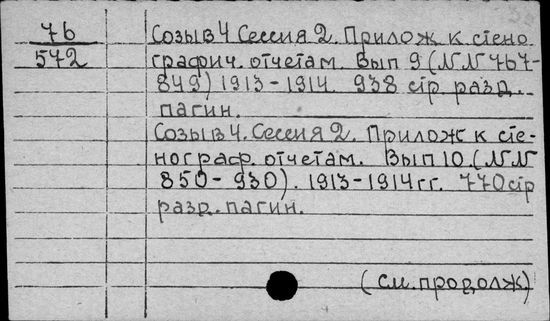 76
572
Созыв 4 Сессия 2. Прилож к стено-
графич. отчетам. Вып 9 (NN 767-
849) 1913-1914. 938 стр разд.
пагин.
Созыв 4. Сессия 2. Прилож к сте-
нограф. отчетам. Вып 10. (NN
850-930). 1913-1914 гг. 770 стр
разд. пагин.
(см. продолж)